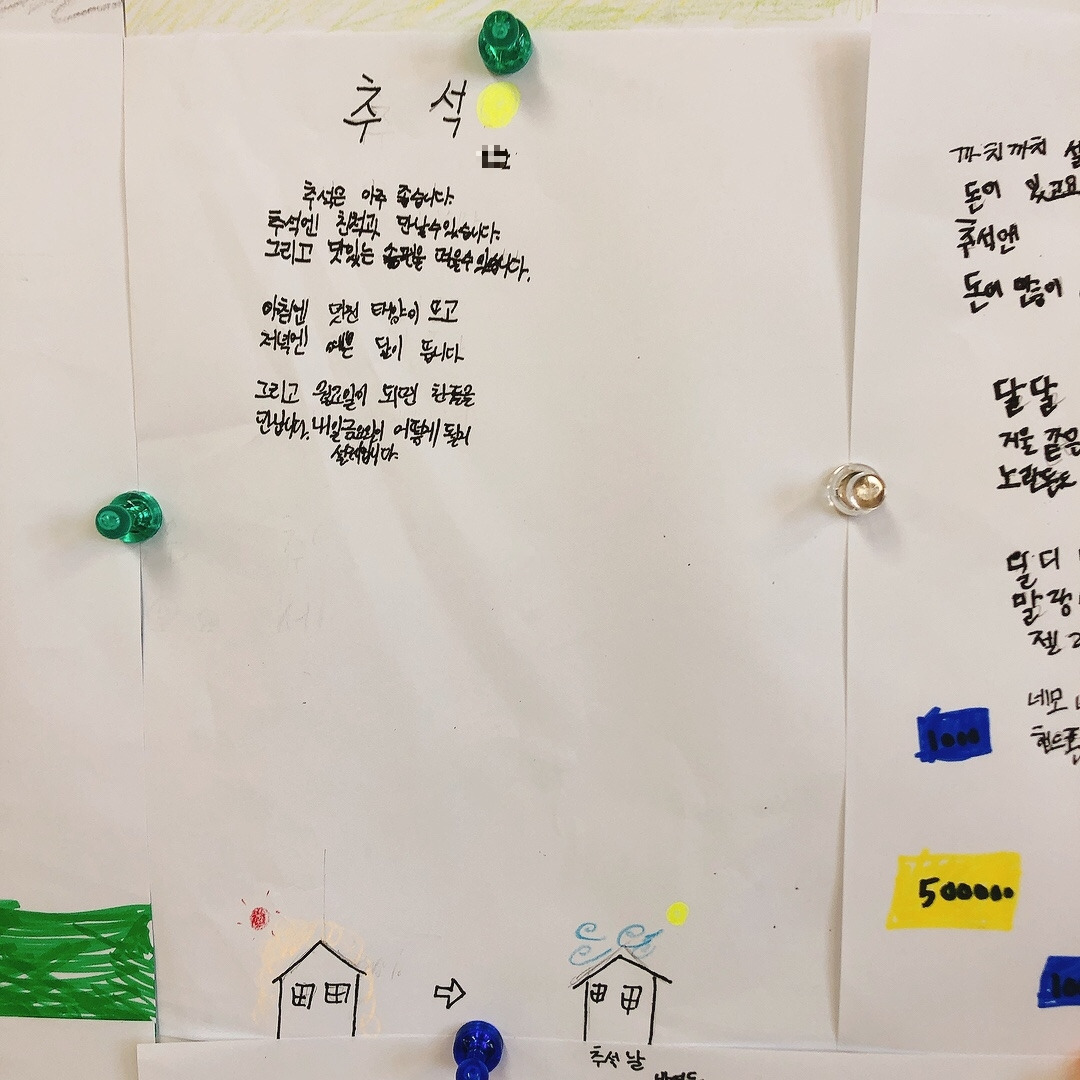 추 석
추석은 아주 좋습니다.
추석엔 친척과 만날수있습니다.
그리고 맛있는 송편을 먹을수있습니다.
아침엔 멋진 태양이 뜨고
저녁엔 예쁜 달이 뜹니다
그리고 월요일이 되면 친구들을
만납니다. 내일금요일이 어떻게 될지
설레입니다.
까치까치 설
돈이 있고요
추석엔
돈이 많이
달달
거울 같은
노란돈도
달디
말랑
젤리
네모
핸드폰
1000
500000
10
추석 날